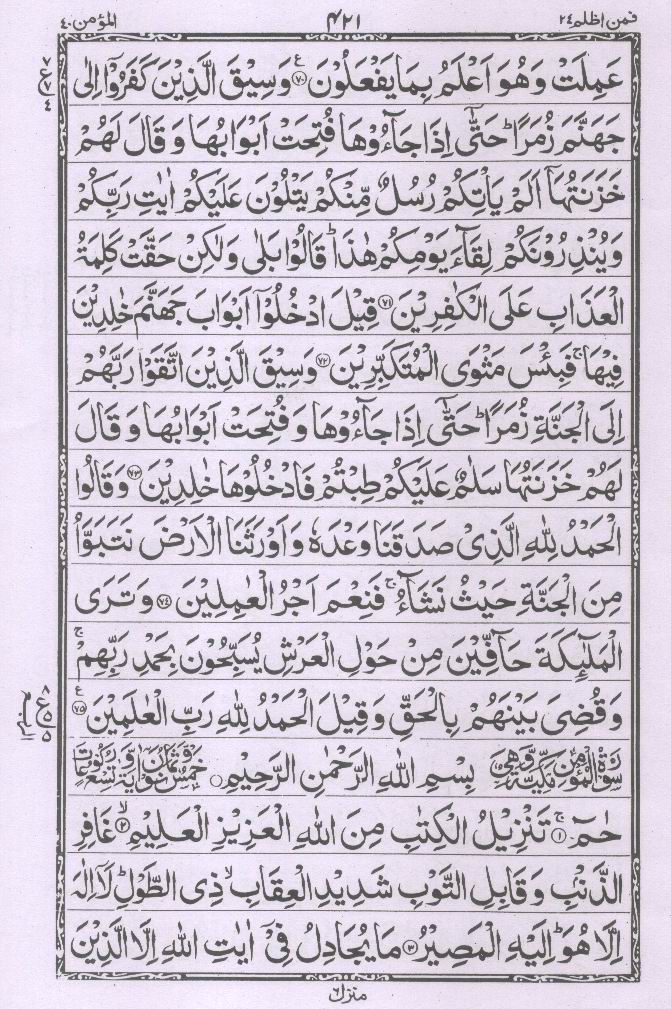 فمن اظلم ٢٤
٤٢١
المؤمن ٤٠
عَمِلَتْ وَهُوَ اَعْلَمُ بِمَا يَفْعَلُوْنَ ﴿٧٠﴾ ع وَسِيْقَ الَّذِيْنَ كَفَرُوْۤا اِلٰى
٧ ع ٧ ٤
جَهَنَّمَ زُمَرًا ؕ حَتّٰۤى اِذَا جَآءُوْهَا فُتِحَتْ اَبْوَابُهَا وَقَالَ لَهُمْ
خَزَنَتُهَاۤ اَلَمْ يَاْتِكُمْ رُسُلٌ مِّنْكُمْ يَتْلُوْنَ عَلَيْكُمْ اٰيٰتِ رَبِّكُمْ
وَيُنْذِرُوْنَكُمْ لِقَآءَ يَوْمِكُمْ هٰذَا ؕ قَالُوْا بَلٰى وَلٰكِنْ حَقَّتْ كَلِمَةُ
الْعَذَابِ عَلَى الْكٰفِرِيْنَ ﴿٧١﴾ قِيْلَ ادْخُلُوْۤا اَبْوَابَ جَهَنَّمَ خٰلِدِيْنَ
فِيْهَا ۚ فَبِئْسَ مَثْوَى الْمُتَكَبِّرِيْنَ ﴿٧٢﴾ وَسِيْقَ الَّذِيْنَ اتَّقَوْا رَبَّهُمْ
اِلَى الْجَنَّةِ زُمَرًا ؕ حَتّٰۤى اِذَا جَآءُوْهَا وَفُتِحَتْ اَبْوَابُهَا وَقَالَ
لَهُمْ خَزَنَتُهَا سَلٰمٌ عَلَيْكُمْ طِبْتُمْ فَادْخُلُوْهَا خٰلِدِيْنَ ﴿٧٣﴾ وَقَالُوا
الْحَمْدُ لِلّٰهِ الَّذِيْ صَدَقَنَا وَعْدَهٗ وَاَوْرَثَنَا الْاَرْضَ نَتَبَوَّاُ
مِنَ الْجَنَّةِ حَيْثُ نَشَآءُ ۚ فَنِعْمَ اَجْرُ الْعٰمِلِيْنَ ﴿٧٤﴾ وَتَرَى
الْمَلٰٓئِكَةَ حَآفِّيْنَ مِنْ حَوْلِ الْعَرْشِ يُسَبِّحُوْنَ بِحَمْدِ رَبِّهِمْ ۚ
وَقُضِيَ بَيْنَهُمْ بِالْحَقِّ وَقِيْلَ الْحَمْدُ لِلّٰهِ رَبِّ الْعٰلَمِيْنَ ﴿٧٥﴾ ع
٨ ع ٥ ٥
سُوْرَةُ الْمُؤْمِنِ مَكِّيَّةٌ وَّهِيَ بِسْمِ اللّٰهِ الرَّحْمٰنِ الرَّحِيْمِ خَمْسٌ وَّثَمَانُوْنَ اٰيَةً وَّتِسْعُ رُكُوْعَاتٍ
حٰمٓ ﴿١﴾ ۚ تَنْزِيْلُ الْكِتٰبِ مِنَ اللّٰهِ الْعَزِيْزِ الْعَلِيْمِ ﴿٢﴾ ۙ غَافِرِ
الذَّنْۢبِ وَقَابِلِ التَّوْبِ شَدِيْدِ الْعِقَابِ ۙ ذِي الطَّوْلِ ؕ لَاۤ اِلٰهَ
اِلَّا هُوَ ؕ اِلَيْهِ الْمَصِيْرُ ﴿٣﴾ مَا يُجَادِلُ فِيْۤ اٰيٰتِ اللّٰهِ اِلَّا الَّذِيْنَ
منزل ٦